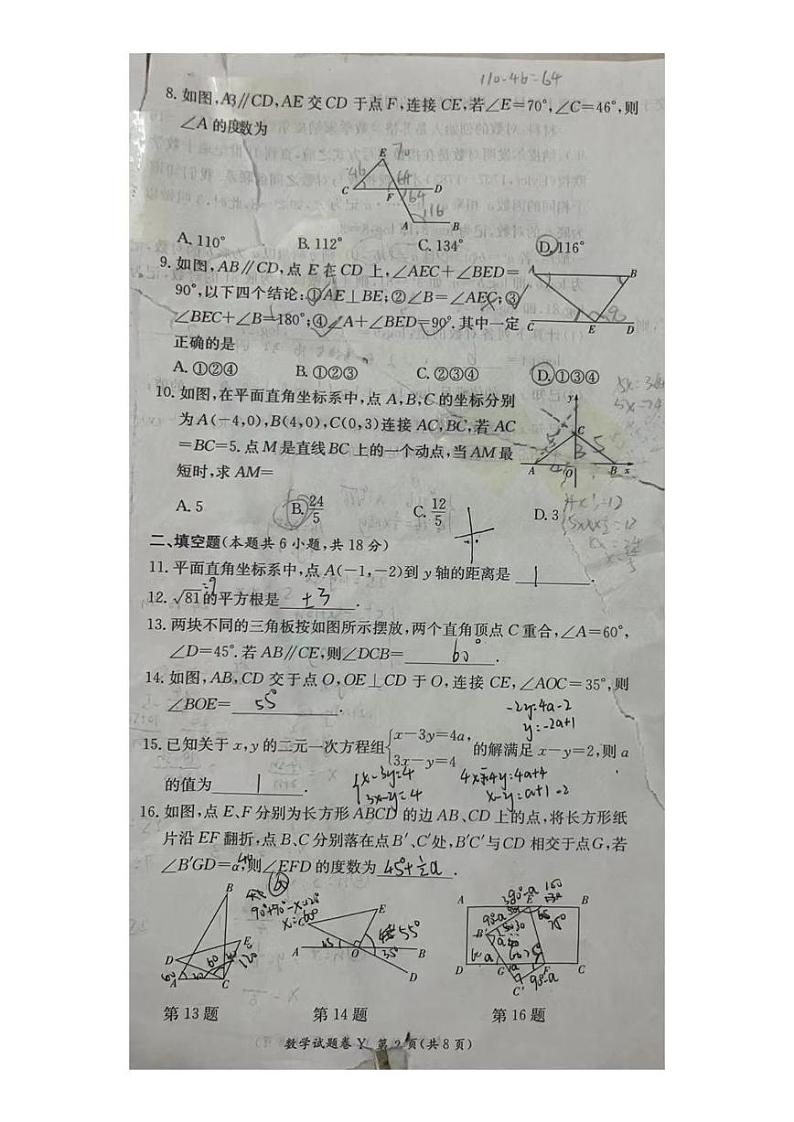 110-46=64
8. 如图,AB∥CD,AE交CD于点F,连接CE,若∠E=70°,∠C=46°,则
∠A的度数为
E 70
46 64
C F D
64
116
A B
A. 110° B. 112° C. 134° D. 116°
9. 如图,AB∥CD,点E在CD上,∠AEC+∠BED=
90°,以下四个结论:①AE⊥BE;②∠B=∠AEC;③
∠BEC+∠B=180°;④∠A+∠BED=90°.其中一定
正确的是
A B
90
C E D
A. ①②④ B. ①②③ C. ②③④ D. ①③④
10. 如图,在平面直角坐标系中,点A,B,C的坐标分别
为A(-4,0),B(4,0),C(0,3)连接AC,BC,若AC
=BC=5.点M是直线BC上的一个动点,当AM最
短时,求AM=
y
C
5 3 5
A O B x
A. 5 B. 24/5 C. 12/5 D. 3
二、填空题(本题共6小题,共18分)
11. 平面直角坐标系中,点A(-1,-2)到y轴的距离是 1 .
=9
12. √81的平方根是 ±3 .
13. 两块不同的三角板按如图所示摆放,两个直角顶点C重合,∠A=60°,
∠D=45°.若AB∥CE,则∠DCB= 60° .
14. 如图,AB,CD交于点O,OE⊥CD于O,连接CE,∠AOC=35°,则
∠BOE= 55° .
-2y=4a-2
y=-2a+1
15. 已知关于x,y的二元一次方程组{x-3y=4a, 3x-y=4 的解满足x-y=2,则a
的值为 1 .
x-3y=4
3x-y=4
4x-4y=4a+4
x-y=a+1=2
16. 如图,点E、F分别为长方形ABCD的边AB、CD上的点,将长方形纸
片沿EF翻折,点B、C分别落在点B′、C′处,B′C′与CD相交于点G,若
∠B′GD=α,则∠EFD的度数为 45°+½a .
B
D E
A C
60 60 120
C E
55°
A 35 O 35° B
D
A E B
90-a
B′
D G F C
C′
90-a
第13题 第14题 第16题
数学试题卷Y 第2页(共8页)